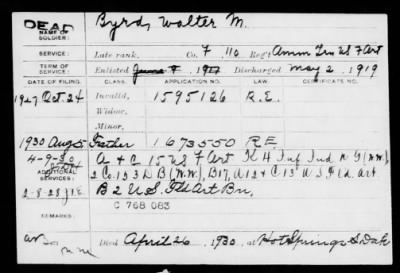 DEAD
NAME OF SOLDIER: Byrd, Walter M.
SERVICE: Late rank, Co. F, 110 Reg't Amm Trn US F Art
TERM OF SERVICE: Enlisted June 7 1917 Discharged May 2, 1919
DATE OF FILING. CLASS. APPLICATION NO. LAW. CERTIFICATE NO.
1927 Oct. 24 Invalid, 1595126 R.E.
Widow,
Minor,
1930 Aug 5 Father 1673550 R.E.
4-9-30 A & C 15 US F Art K 4" Inf Ind N G (W.W.),
ADDITIONAL SERVICES: 2 Co. 153 D B (W.W.), B 17, A 12 & C 13" U S Fld. art
2-8-28 B 2 U.S. Fld Art Bn.
C 768 083
REMARKS:
Died April 26, 1930, at Hot Springs S Dak